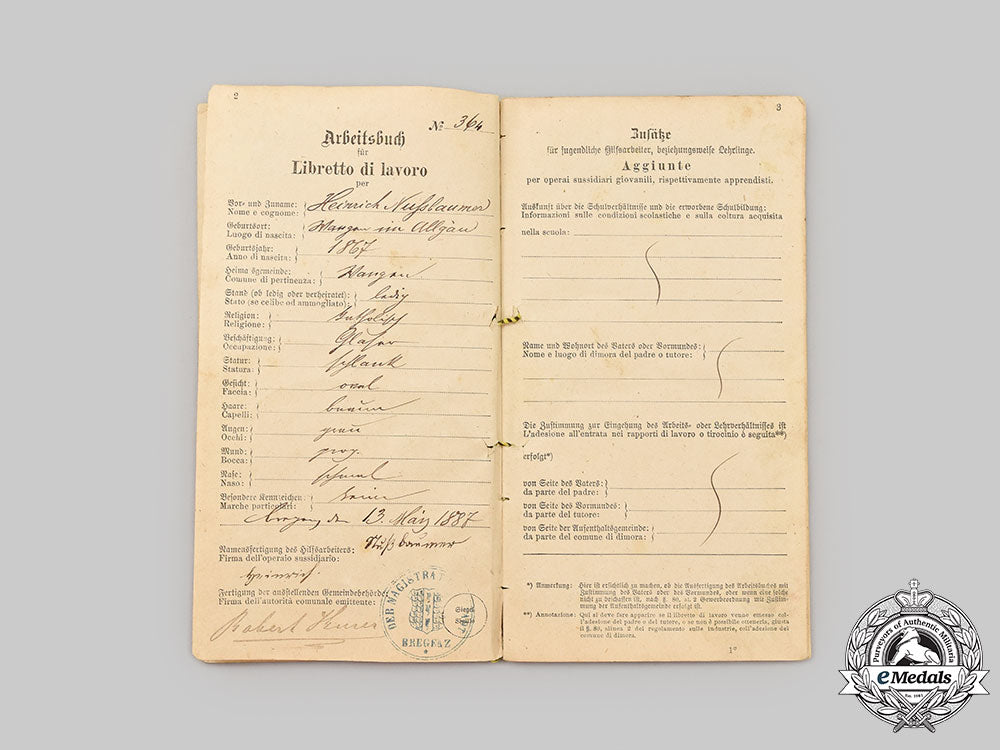 2
№ 364
Arbeitsbuch
für
Libretto di lavoro
per
Vor- und Zuname:
Nome e cognome:
Heinrich Nußbaumer
Geburtsort:
Luogo di nascita:
Wangen im Allgäu
Geburtsjahr:
Anno di nascita:
1867
Heimatsgemeinde:
Comune di pertinenza:
Wangen
Stand (ob ledig oder verheiratet):
Stato (se celibe od ammogliato):
ledig
Religion:
Religione:
katholisch
Beschäftigung:
Occupazione:
Glaser
Statur:
Statura:
schlank
Gesicht:
Faccia:
oval
Haare:
Capelli:
braun
Augen:
Occhi:
grau
Mund:
Bocca:
prop.
Nase:
Naso:
schmal
Besondere Kennzeichen:
Marche particolari:
keine
Bregenz den 13. März 1887
Namensfertigung des Hilfsarbeiters:
Firma dell'operaio sussidiario:
Nußbaumer
Heinrich
Fertigung der ausstellenden Gemeindebehörde:
Firma dell'autorità comunale emittente:
Robert
DER MAGISTRAT
BREGENZ
3
Zusätze
für jugendliche Hilfsarbeiter, beziehungsweise Lehrlinge.
Aggiunte
per operai sussidiari giovanili, rispettivamente apprendisti.
Auskunft über die Schulverhältnisse und die erworbene Schulbildung:
Informazioni sulle condizioni scolastiche e sulla coltura acquisita
nella scuola:
Name und Wohnort des Vaters oder Vormundes:
Nome e luogo di dimora del padre o tutore:
Die Zustimmung zur Eingehung des Arbeits- oder Lehrverhältnisses ist
L'adesione all'entrata nei rapporti di lavoro o tirocinio è seguita**)
erfolgt*)
von Seite des Vaters:
da parte del padre:
von Seite des Vormundes:
da parte del tutore:
von Seite der Aufenthaltsgemeinde:
da parte del comune di dimora:
*) Anmerkung: Hier ist ersichtlich zu machen, ob die Ausfertigung des Arbeitsbuches mit
Zustimmung des Vaters oder des Vormundes, oder wenn eine solche
nicht zu beschaffen ist, nach § 80, al. 2 der Gewerbeordnung mit Zustim-
mung der Aufenthaltsgemeinde erfolgt ist.
**) Annotazione: Qui si deve fare apparire se il libretto di lavoro venne emesso col-
l'adesione del padre o del tutore, o se non è possibile ottenerla, giusta
il §. 80, alinea 2 del regolamento sulle industrie, coll'adesione del
comune di dimora.
1*
Purveyors of Authentic Militaria
eMedals